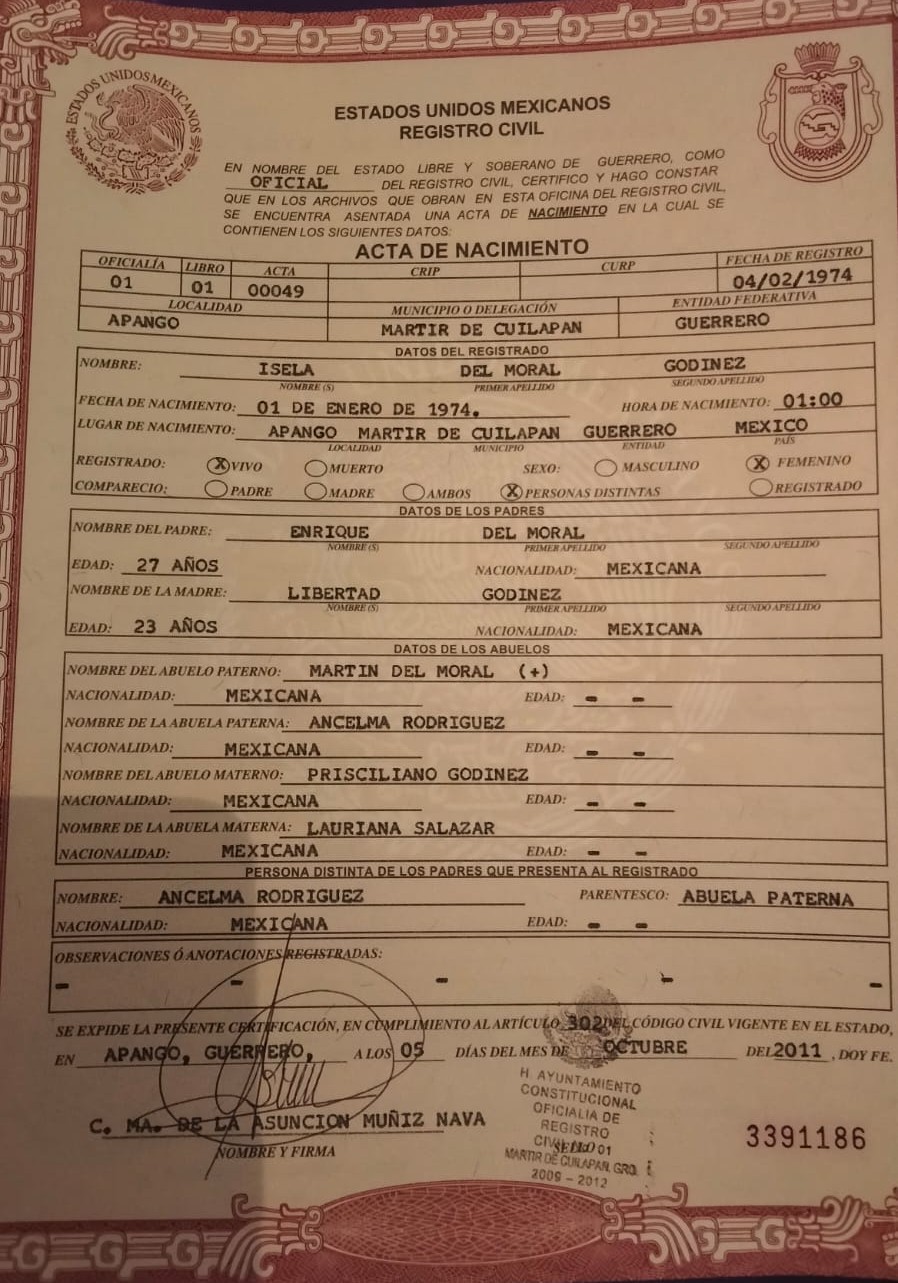 ESTADOS UNIDOS MEXICANOS
ESTADOS UNIDOS MEXICANOS
REGISTRO CIVIL
EN NOMBRE DEL ESTADO LIBRE Y SOBERANO DE GUERRERO, COMO
OFICIAL DEL REGISTRO CIVIL, CERTIFICO Y HAGO CONSTAR
QUE EN LOS ARCHIVOS QUE OBRAN EN ESTA OFICINA DEL REGISTRO CIVIL,
SE ENCUENTRA ASENTADA UNA ACTA DE NACIMIENTO EN LA CUAL SE
CONTIENEN LOS SIGUIENTES DATOS:
ACTA DE NACIMIENTO
OFICIALÍA LIBRO ACTA CRIP CURP FECHA DE REGISTRO
01 01 00049 04/02/1974
LOCALIDAD MUNICIPIO O DELEGACIÓN ENTIDAD FEDERATIVA
APANGO MARTIR DE CUILAPAN GUERRERO
DATOS DEL REGISTRADO
NOMBRE: ISELA DEL MORAL GODINEZ
NOMBRE (S) PRIMER APELLIDO SEGUNDO APELLIDO
FECHA DE NACIMIENTO: 01 DE ENERO DE 1974. HORA DE NACIMIENTO: 01:00
LUGAR DE NACIMIENTO: APANGO MARTIR DE CUILAPAN GUERRERO MEXICO
LOCALIDAD MUNICIPIO ENTIDAD PAÍS
REGISTRADO: X VIVO MUERTO SEXO: MASCULINO X FEMENINO
COMPARECIO: PADRE MADRE AMBOS X PERSONAS DISTINTAS REGISTRADO
DATOS DE LOS PADRES
NOMBRE DEL PADRE: ENRIQUE DEL MORAL
NOMBRE (S) PRIMER APELLIDO SEGUNDO APELLIDO
EDAD: 27 AÑOS NACIONALIDAD: MEXICANA
NOMBRE DE LA MADRE: LIBERTAD GODINEZ
NOMBRE (S) PRIMER APELLIDO SEGUNDO APELLIDO
EDAD: 23 AÑOS NACIONALIDAD: MEXICANA
DATOS DE LOS ABUELOS
NOMBRE DEL ABUELO PATERNO: MARTIN DEL MORAL (+)
NACIONALIDAD: MEXICANA EDAD: - -
NOMBRE DE LA ABUELA PATERNA: ANCELMA RODRIGUEZ
NACIONALIDAD: MEXICANA EDAD: - -
NOMBRE DEL ABUELO MATERNO: PRISCILIANO GODINEZ
NACIONALIDAD: MEXICANA EDAD: - -
NOMBRE DE LA ABUELA MATERNA: LAURIANA SALAZAR
NACIONALIDAD: MEXICANA EDAD: - -
PERSONA DISTINTA DE LOS PADRES QUE PRESENTA AL REGISTRADO
NOMBRE: ANCELMA RODRIGUEZ PARENTESCO: ABUELA PATERNA
NACIONALIDAD: MEXICANA EDAD: - -
OBSERVACIONES Ó ANOTACIONES REGISTRADAS:
- - - - -
SE EXPIDE LA PRESENTE CERTIFICACIÓN, EN CUMPLIMIENTO AL ARTÍCULO 302 DEL CÓDIGO CIVIL VIGENTE EN EL ESTADO,
EN APANGO, GUERRERO, A LOS 05 DÍAS DEL MES DE OCTUBRE DEL 2011, DOY FE.
C. MA. DE LA ASUNCION MUÑIZ NAVA
NOMBRE Y FIRMA
H AYUNTAMIENTO
CONSTITUCIONAL
OFICIALIA DE
REGISTRO
CIVIL 01
SELLO
MARTIR DE CUILAPAN, GRO.
2009 - 2012
3391186